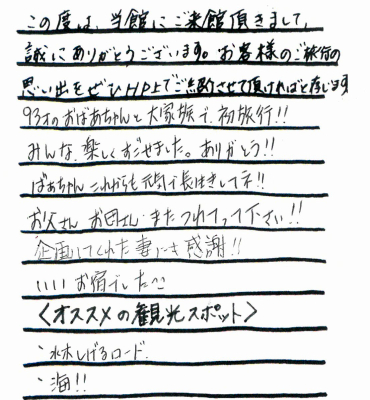 この度は、当館にご来館頂きまして、
誠にありがとうございます。お客様のご旅行の
思い出をぜひHP上でご紹介させて頂ければと存じます
93才のおばあちゃんと大家族で初旅行!!
みんな、楽しくすごせました。ありがとう!!
ばあちゃん これからも元気で長生きしてネ!!
お父さん お母さん またつれてって下さい!!
企画してくれた妻にも感謝!!
いいお宿でした^^
<オススメの観光スポット>
・水木しげるロード.
・海!!